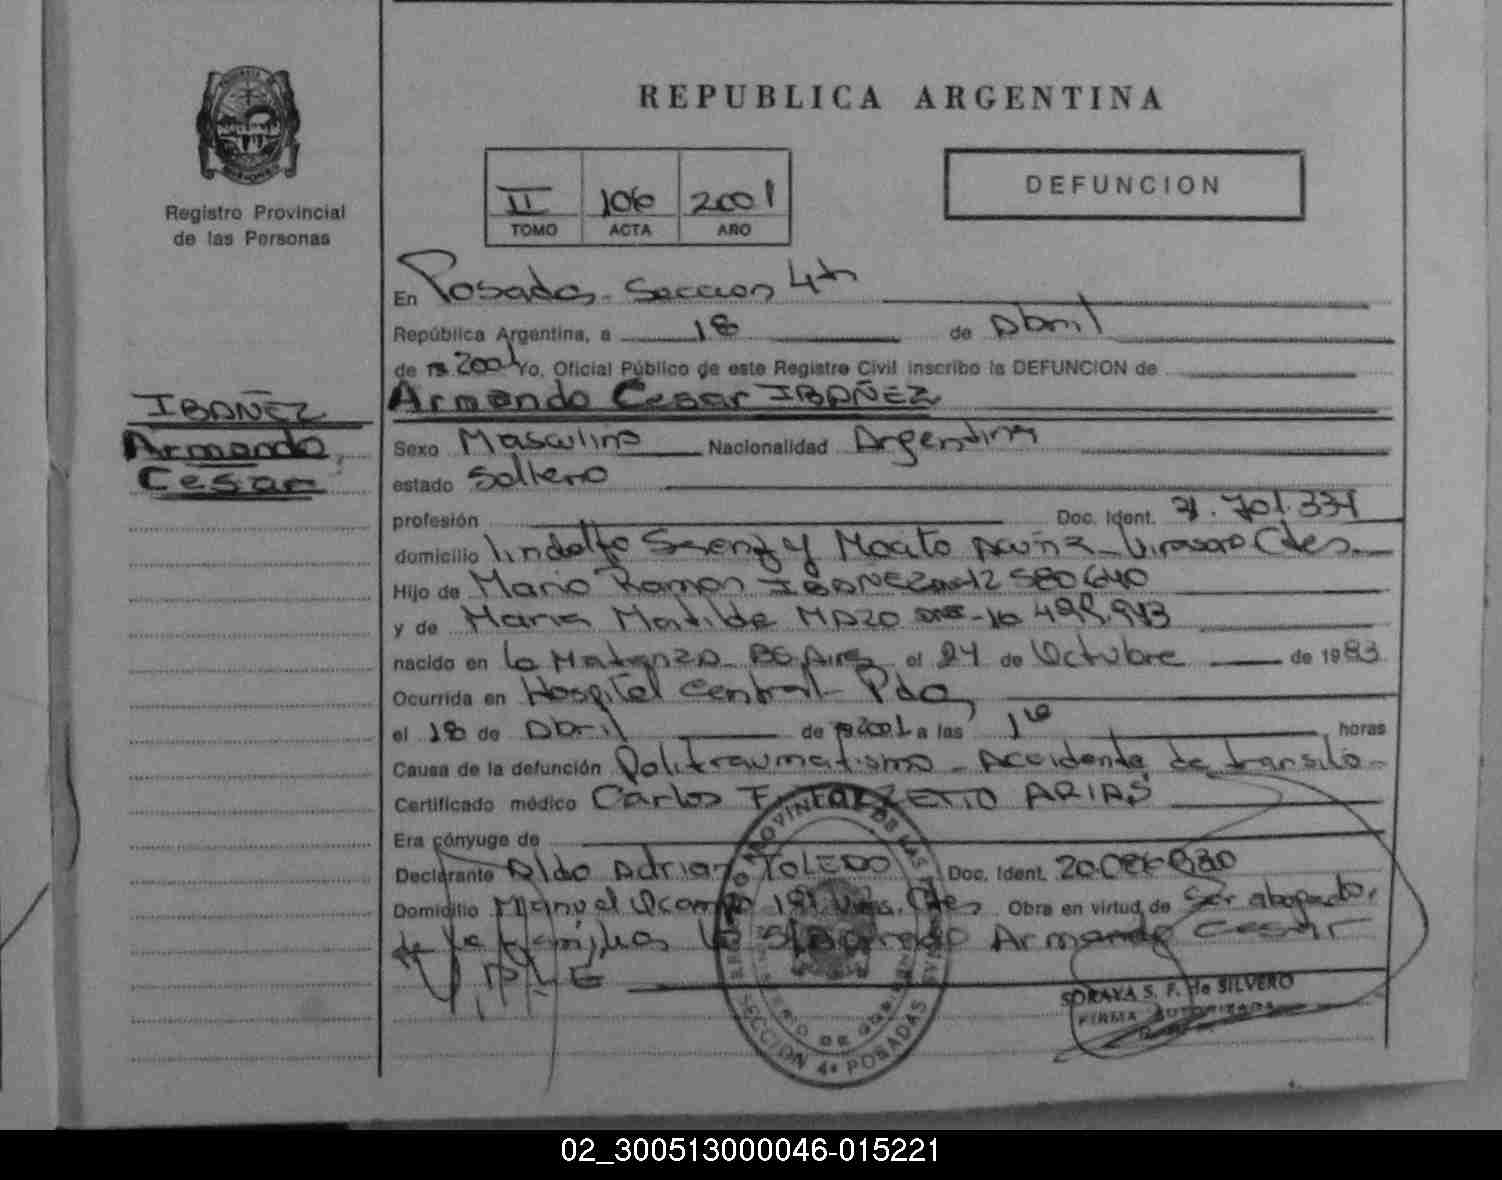 REPUBLICA ARGENTINA
Registro Provincial
de las Personas
II 106 2001
TOMO ACTA AÑO
DEFUNCION
En Posadas - Seccion 4ta
República Argentina, a 18 de Abril
de 2001 Yo, Oficial Público de este Registro Civil inscribo la DEFUNCION de
IBAÑEZ
Armando
Cesar
Armando Cesar IBAÑEZ
Sexo Masculino Nacionalidad Argentina
estado Soltero
profesión Doc. Ident. 31.701.334
domicilio lindolfo y - Virasoro Ctes.
Hijo de Mario Ramon IBAÑEZ 12 580 640
y de Maria Matilde MAZO
nacido en La Matanza - Bs Aires el 24 de Octubre de 1983
Ocurrida en Hospital Central - Pdas
el 18 de Abril de 2001 a las horas
Causa de la defunción Politraumatismo - Accidente de transito -
Certificado médico Carlos F. ARIAS
Era cónyuge de
Declarante Aldo Adrian TOLEDO Doc. Ident.
Domicilio Manuel Ocampo Ctes Obra en virtud de Ser abogado
de la Armando Cesar
REGISTRO PROVINCIAL DE LAS PERSONAS
MINISTERIO DE GOBIERNO
SECCION 4ª POSADAS
SORAYA S. F. de SILVERO
FIRMA AUTORIZADA
02_300513000046-015221